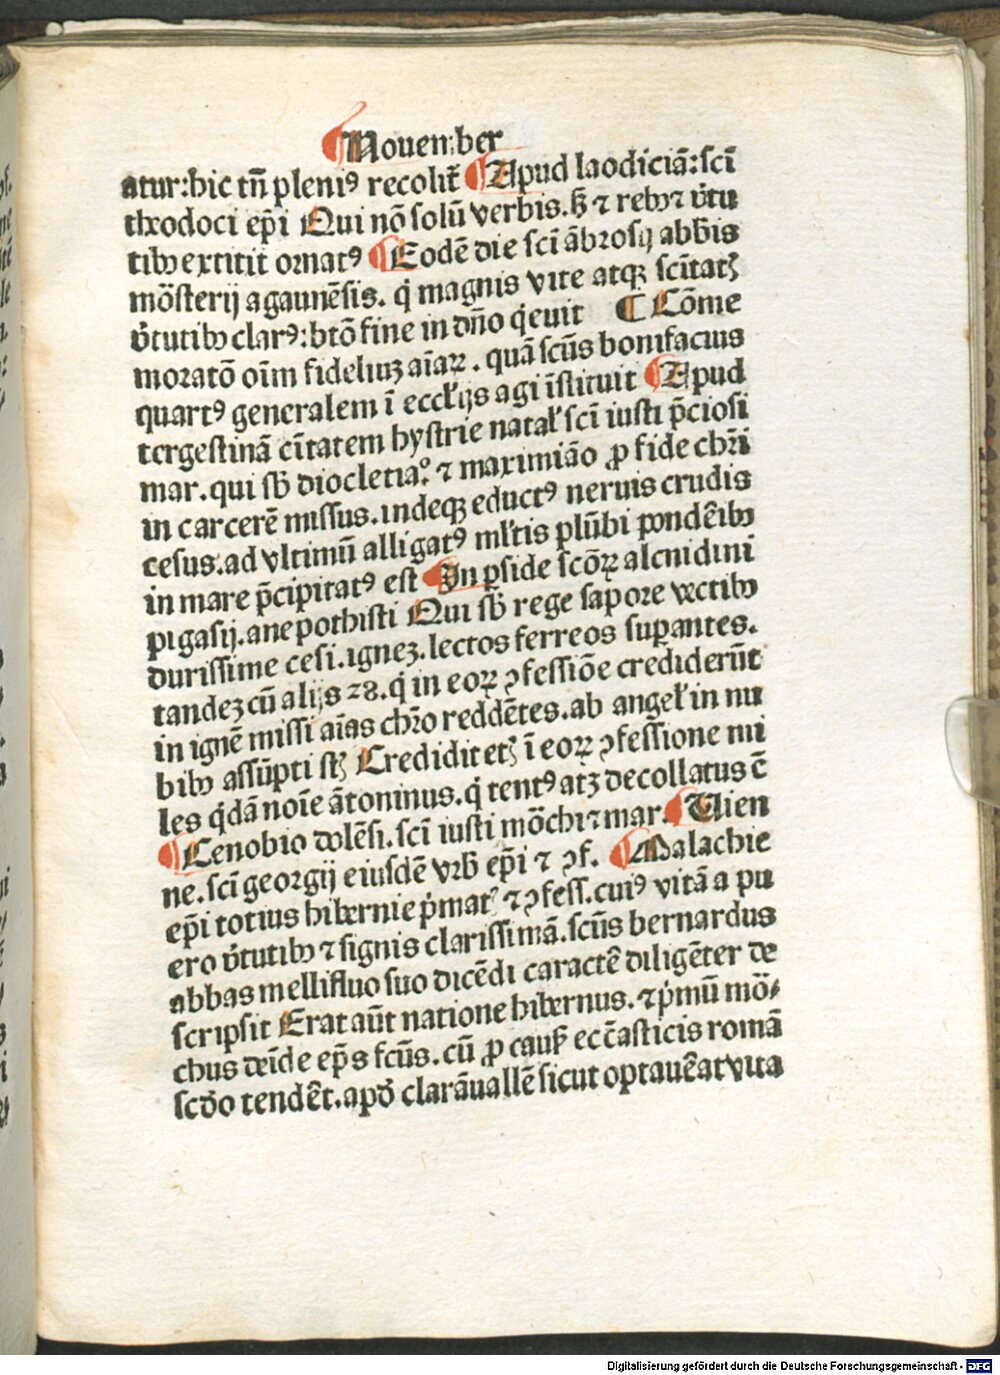 ¶Nouember
atur:hic tñ pleniꝰ recolit̃ ¶Apud laodiciã:scĩ
theodoci ep̃i Qui nõ solũ verbis.hʒ ⁊ rebꝫ ⁊ v̓tu
tibꝫ extitit ornatꝰ ¶Eodẽ die scĩ ãbrosij abb̃is
mõsterij agaunẽsis. q̇ magnis vite atqꝫ scĩtatꝭ
v̓tutibꝫ clarꝰ:btõ fine in dño q̇euit ¶Cõme
moratõ oĩm fideliuʒ aĩaꝝ. quã scũs bonifacius
quartꝰ generalem ĩ eccl̃ijs agi ĩstituit ¶Apud
tergestinã cĩtatem hystrie natal̓ scĩ iusti p̃ciosi
mar.qui sb̃ diocletia.º ⁊ maximião ꝓ fide chr̃i
in carcerẽ missus.indeqꝫ eductꝰ neruis crudis
cesus.ad vltimũ alligatꝰ ml̓tis plũbi pondẽibꝫ
in mare p̃cipitatꝰ est ¶In ꝑside scõꝝ alcnidini
pigasij.anepothisti Qui sb̃ rege sapore vectibꝫ
durissime cesi.igneʒ.lectos ferreos suꝑantes.
tandeʒ cũ alijs 28.q̇ in eoꝝ ꝯfessiõe crediderũt
in ignẽ missi aĩas chr̃o reddẽtes.ab angel̓ in nu
bibꝫ assũpti sꝭ Credidit etꝭ ĩ eoꝝ ꝯfessione mi
les q̇dã noĩe ãtoninus.q̇ tentꝰ atʒ decollatus ẽ
¶Cenobio dolẽsi.scĩ iusti mõchi ⁊ mar. ¶Uien
ne.scĩ georgij eiusdẽ vrb̃ ep̃i ⁊ ꝯf. ¶Malachie
ep̃i totius hibernie p̓mat̓ ⁊ ꝯfess.cuiꝰ vitã a pu
ero v̓tutibꝫ ⁊ signis clarissimã.scũs bernardus
abbas mellifluo suo dicẽdi caractẽ diligẽter de
scripsit Erat aũt natione hibernus.⁊ p̓mũ mõ⸗
chus deĩde ep̃s fcũs.cũ ꝓ cauẞ ecc̃asticis romã
scd̓o tendẽt.apd̓ clarãuallẽ sicut optauẽat vita